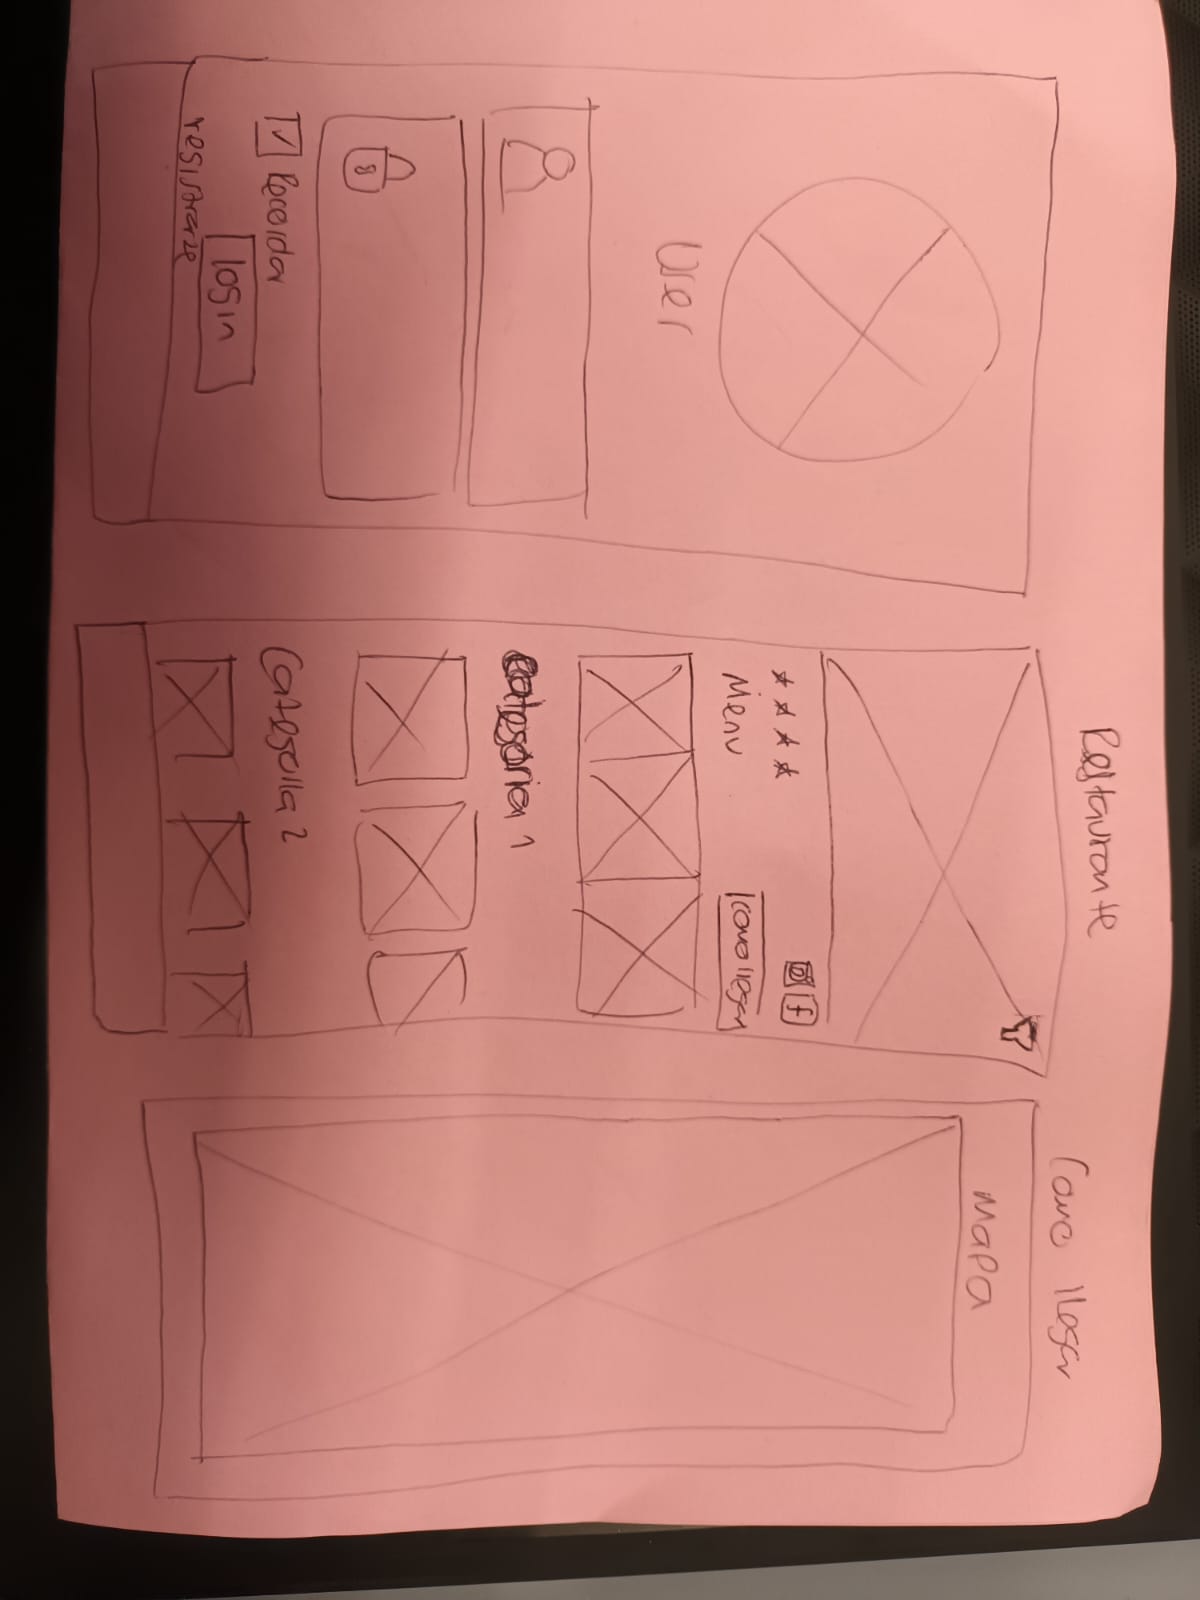 User
Recordar
login
registrarse
Restaurante
f
Menu
Como llegar
Categoria 1
Categoria 2
Como llegar
MAPA